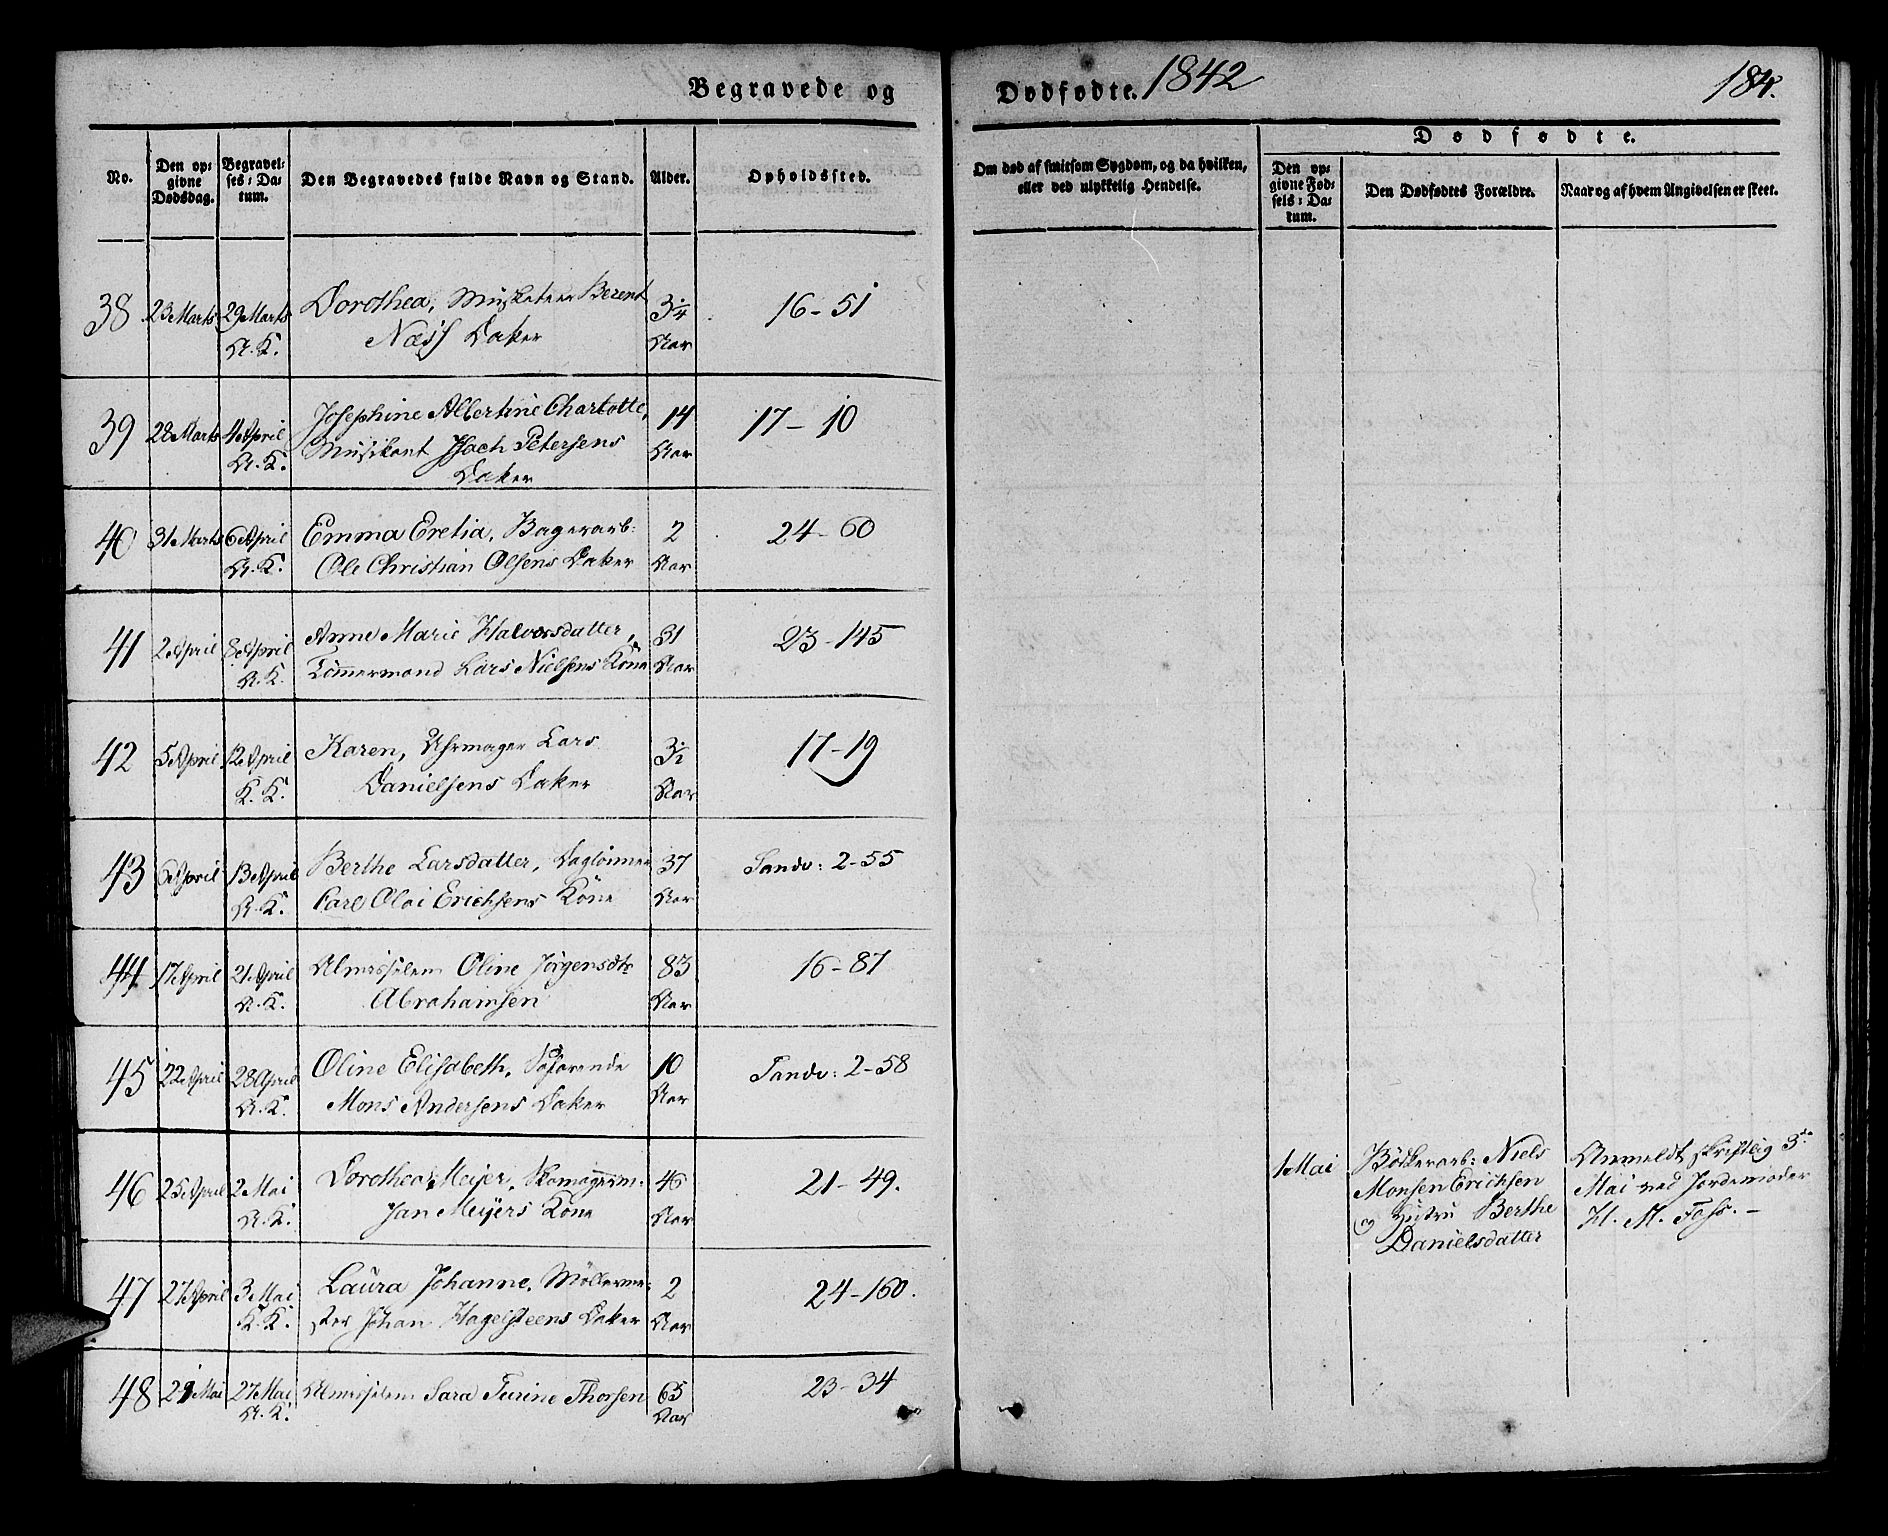 Begravede og
Dødfødte. 1842
184.
No.
Den op-
givne
Dødsdag.
Begravel-
ses-Da-
tum.
Den Begravedes fulde Navn og Stand.
Alder.
Opholdssted.
Om død af smitsom Sygdom, og da hvilken,
eller ved ulykkelig Hendelse.
Dødfødte.
Den op-
givne Fød-
sels-Da-
tum.
Den Dødfødtes Forældre.
Naar og af hvem Angivelsen er skeet.
38 23 Marts 29 Marts Dorothea, Musketeer Berent 3 1/4 16-51
A. K. Næss Datter Aar
39 28 Marts 4 April Josephine Albertine Charlotte, 14 17-10
A. K. Musikant Petersens Aar
Datter
40 31 Marts 6 April Emma Eretia, Bagerarb: 2 24-60
A. K. Ole Christian Olsens Datter Aar
41 2 April 8 April Anne Marie Halvorsdatter, 31 23-145
A. K. Tömmermand Lars Nielsens Kone Aar
42 5 April 12 April Karen, Uhrmager Lars 3 1/2 17-19
K. K. Danielsens Datter Aar
43 6 April 13 April Berthe Larsdatter, Daglönner 37 Sandv: 2-55
A. K. Carl Olai Erichsens Kone Aar
44 17 April 21 April Almisselem Oline Jörgensdtr 83 16-87
A. K. Abrahamsen Aar
45 22 April 28 April Oline Elisabeth, Söfarende 10 Sandv: 2-58
A. K. Mons Andersens Datter Aar
46 25 April 2 Mai Dorothea Meijer, Skomagerm. 46 21-49.
A. K. Jan Meijers Kone Aar
1 Mai Bödkerarb: Niels
Monsen Erichsen
og Hustru Berthe
Danielsdatter
Anmeldt skriftlig 3die
Mai ved Jordemoder
H. M. Foss. -
47 27 April 3 Mai Laura Johanne, Möllerme- 2 24-160.
K. K. ster Johan Hagelsteens Datter Aar
48 21 Mai 27 Mai Almisselem Sara Turine Thorsen 65 23-34
A. K. Aar